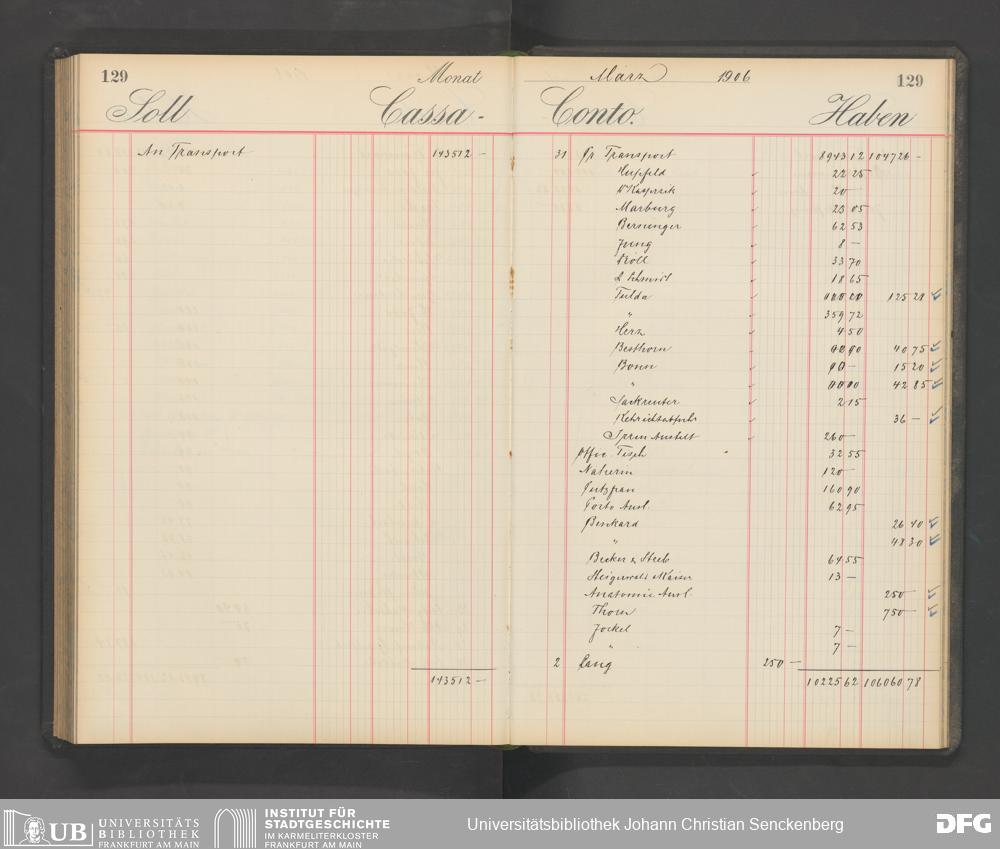 129
Monat
Soll
Cassa-
An Transport 143512 –
143512 –
März 1906
129
Conto.
Haben
31 Pr Transport 8943 12 104726 –
Hupfeld 22 25
20 –
Marburg 23 05
Bersinger 62 53
Jung 8 –
Kröll 33 70
L Schmidt 18 65
Fulda 125 28
" 359 72
Herz 4 50
Besthorn 40 75
Bonn 15 20
" 42 85
Sackreuter 2 15
Kehrichtabfuhr 36 –
Irren Anstalt 260 –
Tisch 32 55
Näherin 120 –
Putzfrau 160 90
Porto Ausl. 62 95
Bernhard 26 40
" 48 30
Becker & Streb 64 55
Steigerwald Kaiser 13 –
Anatomie Ausl. 250 –
Thorn 750 –
Jockel 7 –
" 7 –
2 Lang 250 –
10225 62 106060 78
UB
UNIVERSITÄTS
BIBLIOTHEK
FRANKFURT AM MAIN
INSTITUT FÜR
STADTGESCHICHTE
IM KARMELITERKLOSTER
FRANKFURT AM MAIN
Universitätsbibliothek Johann Christian Senckenberg
DFG